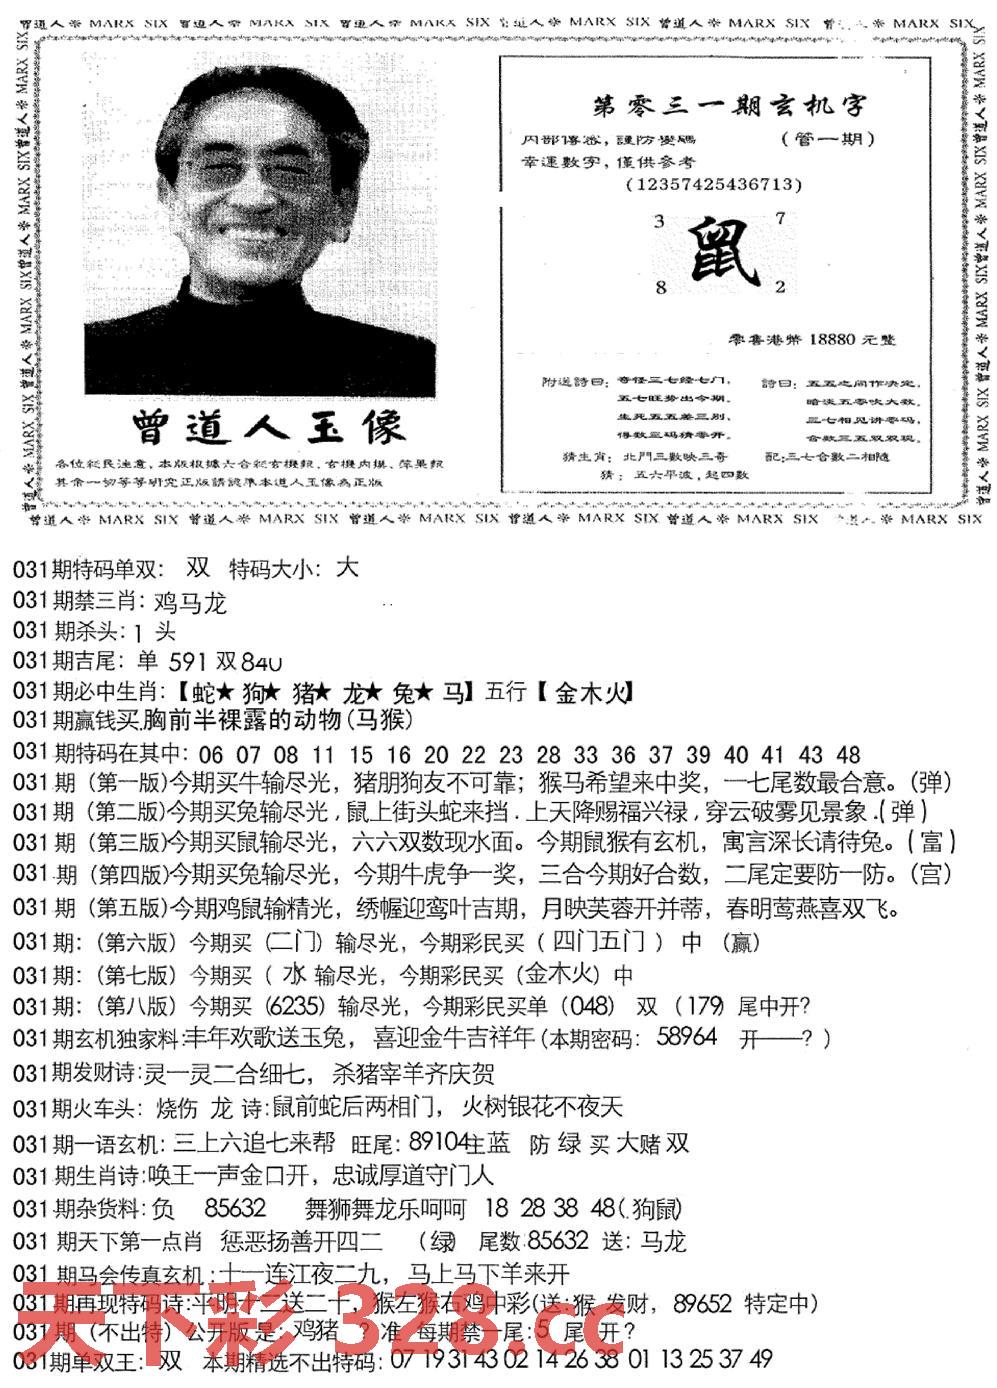 曾道人※ MARX SIX 曾道人※ MARX SIX 曾道人※ MARX SIX 曾道人※ MARX SIX 曾道人※ MARX SIX 曾道人※ MARX SIX
第零三一期玄机字
内部傳密，謹防變碼 （管一期）
幸運數字，僅供參考
(12357425436713)
3 7
鼠
8 2
零售港幣 18880 元整
附送詩曰：奇怪三七经七门，
五七旺势出今期。
生死五五差三别，
得数三码猜零开。
詩曰：五五之间作决定，
暗淡五零吹大数。
三七相见讲零码，
合数三五双双现。
猜生肖：北門三數映三奇 配：三七合數二相隨
猜：五六平波，起四數
曾道人玉像
各位彩民注意，本版根據六合彩玄機報、玄機內摸、蘋果報
其余一切等等研究正版請認準本道人玉像為正版
曾道人※ MARX SIX 曾道人※ MARX SIX 曾道人※ MARX SIX 曾道人※ MARX SIX 曾道人※ MARX SIX 曾道人※ MARX SIX
031期特码单双： 双 特码大小： 大
031期禁三肖：鸡马龙
031期杀头：1 头
031期吉尾：单 591 双840
031期必中生肖：【蛇★ 狗★ 猪★ 龙★ 兔★ 马】五行【 金木火】
031期赢钱买.胸前半裸露的动物(马猴)
031期特码在其中：06 07 08 11 15 16 20 22 23 28 33 36 37 39 40 41 43 48
031期（第一版)今期买牛输尽光，猪朋狗友不可靠；猴马希望来中奖，一七尾数最合意。（弹）
031期（第二版)今期买兔输尽光，鼠上街头蛇来挡．上天降赐福兴禄，穿云破雾见景象．(弹）
031期（第三版)今期买鼠输尽光，六六双数现水面。今期鼠猴有玄机，寓言深长请待兔。(富）
031期（第四版)今期买兔输尽光，今期牛虎争一奖，三合今期好合数，二尾定要防一防。（宫）
031期（第五版)今期鸡鼠输精光，绣幄迎鸾叶吉期，月映芙蓉开并蒂，春明莺燕喜双飞。
031期：（第六版）今期买（二门）输尽光，今期彩民买（ 四门五门 ） 中 （赢）
031期：（第七版）今期买（ 水 输尽光，今期彩民买（金木火）中
031期：（第八版）今期买（6235）输尽光，今期彩民买单（048） 双 （179）尾中开？
031期玄机独家料：丰年欢歌送玉兔， 喜迎金牛吉祥年（本期密码： 58964 开——？）
031期发财诗：灵一灵二合细七， 杀猪宰羊齐庆贺
031期火车头： 烧伤 龙 诗：鼠前蛇后两相门， 火树银花不夜天
031期一语玄机：三上六追七来帮 旺尾：89104主蓝 防 绿 买 大赌 双
031期生肖诗：唤王一声金口开，忠诚厚道守门人
031期杂货料：负 85632 舞狮舞龙乐呵呵 18 28 38 48(.狗鼠)
031 期天下第一点肖 惩恶扬善开四二 （绿） 尾数：85632 送：马龙
031 期马会传真玄机：十一连江夜二九， 马上马下羊来开
031期再现特码诗：平明十二送二十，猴左猴右鸡中彩(送：猴 发财， 89652 特定中）
031期（不出特）公开版 是：鸡猪 准 每期禁一尾：5 尾 开？
031期单双王：双 本期精选不出特码：07 19 31 43 02 14 26 38 01 13 25 37 49
天下彩 328.cc